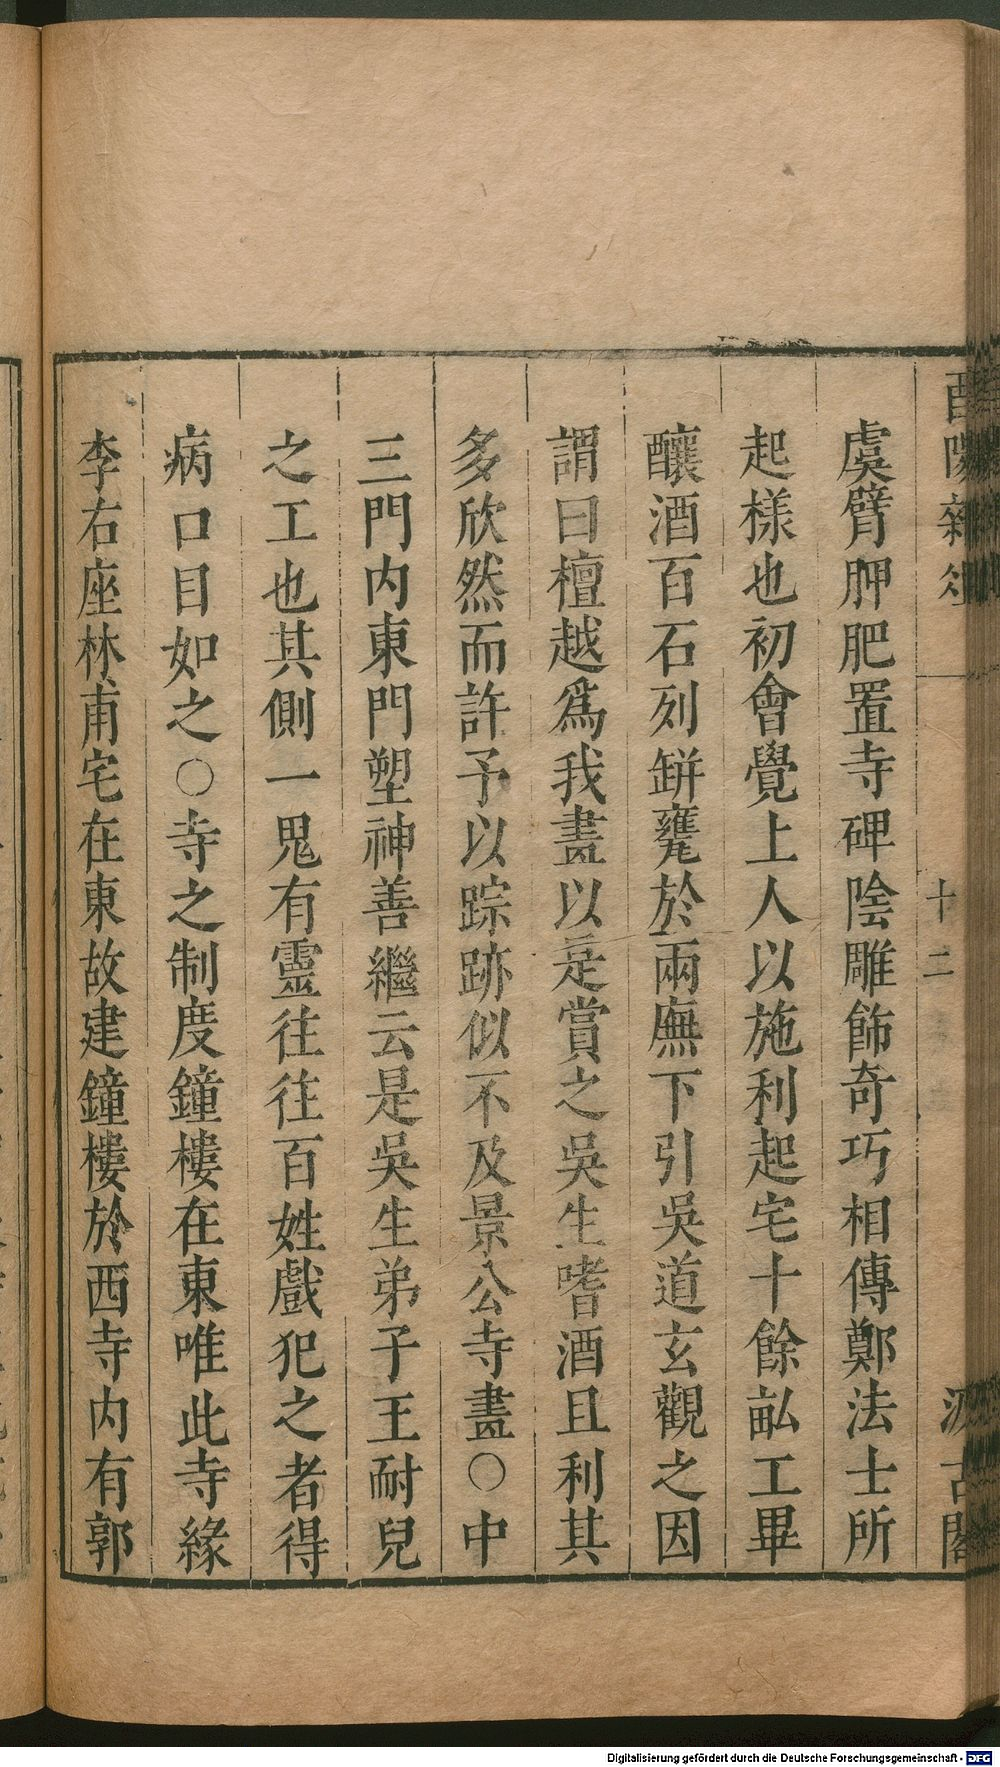 酉陽雜俎
十二
汲古閣
虞臂胛肥置寺碑陰雕飾奇巧相傳鄭法士所
起樣也初會覺上人以施利起宅十餘畝工畢
釀酒百石列缾甕於兩廡下引吳道玄觀之因
謂曰檀越爲我畫以是賞之吳生嗜酒且利其
多欣然而許予以踪跡似不及景公寺畫○中
三門内東門塑神善繼云是吳生弟子王耐兒
之工也其側一鬼有靈往往百姓戲犯之者得
病口目如之○寺之制度鐘樓在東唯此寺緣
李右座林甫宅在東故建鐘樓於西寺内有郭
Digitalisierung gefördert durch die Deutsche Forschungsgemeinschaft - DFG